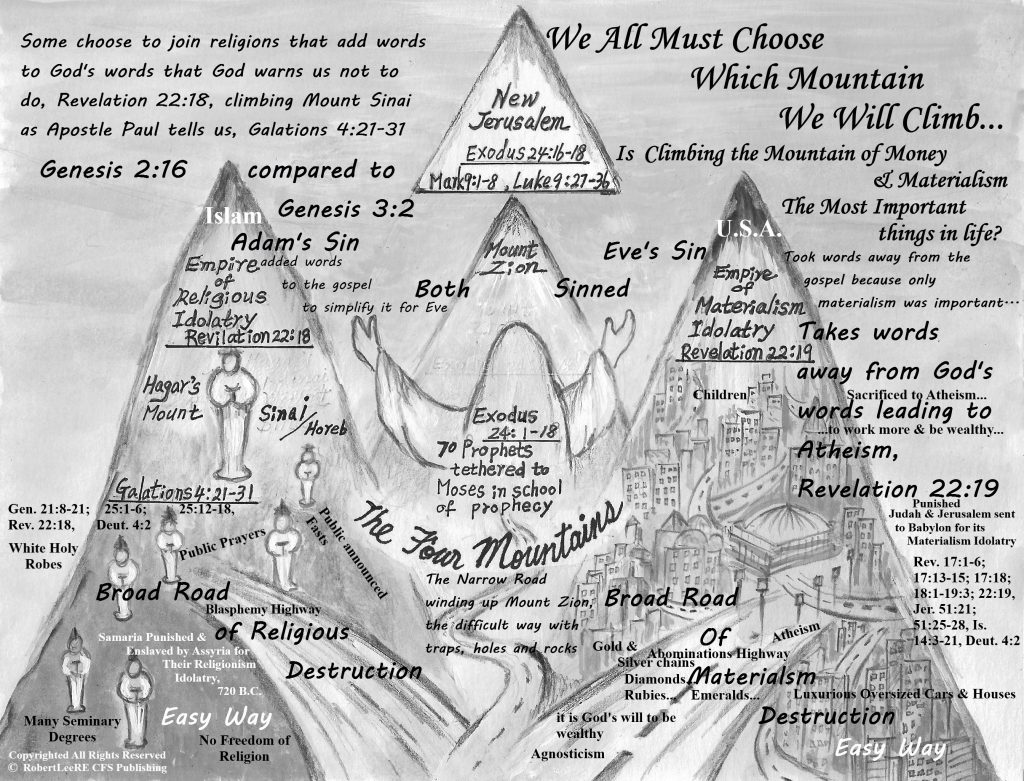 Some choose to join religions that add words
to God's words that God warns us not to
do, Revelation 22:18, climbing Mount Sinai
as Apostle Paul tells us, Galations 4:21-31
We All Must Choose
Which Mountain
We Will Climb...
Is Climbing the Mountain of Money
& Materialism
The Most Important
things in life?
New
Jerusalem
Exodus 24:16-18
Mark 9:1-8, Luke 9:27-36
Genesis 2:16 compared to
Genesis 3:2
Islam
Adam's Sin
added words
to the gospel
to simplify it for Eve
Empire
of
Religious
Idolatry
Revilation 22:18
Hagar's
Mount
Sinai/
Horeb
Galations 4:21-31
Gen. 21:8-21; 25:1-6; 25:12-18,
Rev. 22:18, Deut. 4:2
White Holy
Robes
Public Prayers
Public announced
Fasts
Broad Road
Blasphemy Highway
of Religious
Destruction
Samaria Punished &
Enslaved by Assyria for
Their Religionism
Idolatry,
720 B.C.
Many Seminary
Degrees
Easy Way
No Freedom of
Religion
Copyrighted All Rights Reserved
© RobertLeeRE CFS Publishing
Mount
Zion
Both Sinned
Exodus
24:1-18
70 Prophets
tethered to
Moses in school
of prophecy
The Four Mountains
The Narrow Road
winding up Mount Zion,
the difficult way with
traps, holes and rocks
U.S.A.
Eve's Sin
Took words away from the
gospel because only
materialism was important...
Empire
of
Materialism
Idolatry
Revelation 22:19
Takes words
away from God's
words leading to
Atheism,
Revelation 22:19
Children Sacrificed to Atheism...
...to work more & be wealthy...
Punished
Judah & Jerusalem sent
to Babylon for its
Materialism Idolatry
Rev. 17:1-6;
17:13-15; 17:18;
18:1-19:3; 22:19,
Jer. 51:21;
51:25-28, Is.
14:3-21, Deut. 4:2
Broad Road
Of
Materialsm
Destruction
Atheism
Abominations Highway
Gold &
Silver chains
Diamonds,
Rubies... Emeralds...
Luxurious Oversized Cars & Houses
it is God's will to be
wealthy
Agnosticism
Easy Way